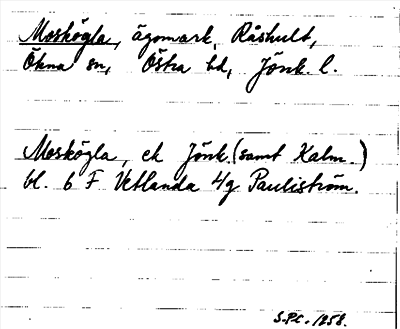 Moskögla, ägomark, Råshult,
Ökna sn, Östra hd, Jönk. l.
Moskögla, ek Jönk. (samt Kalm.)
bl. 6 F Vetlanda 4/g Pauliström.
S.P.C. 1858.